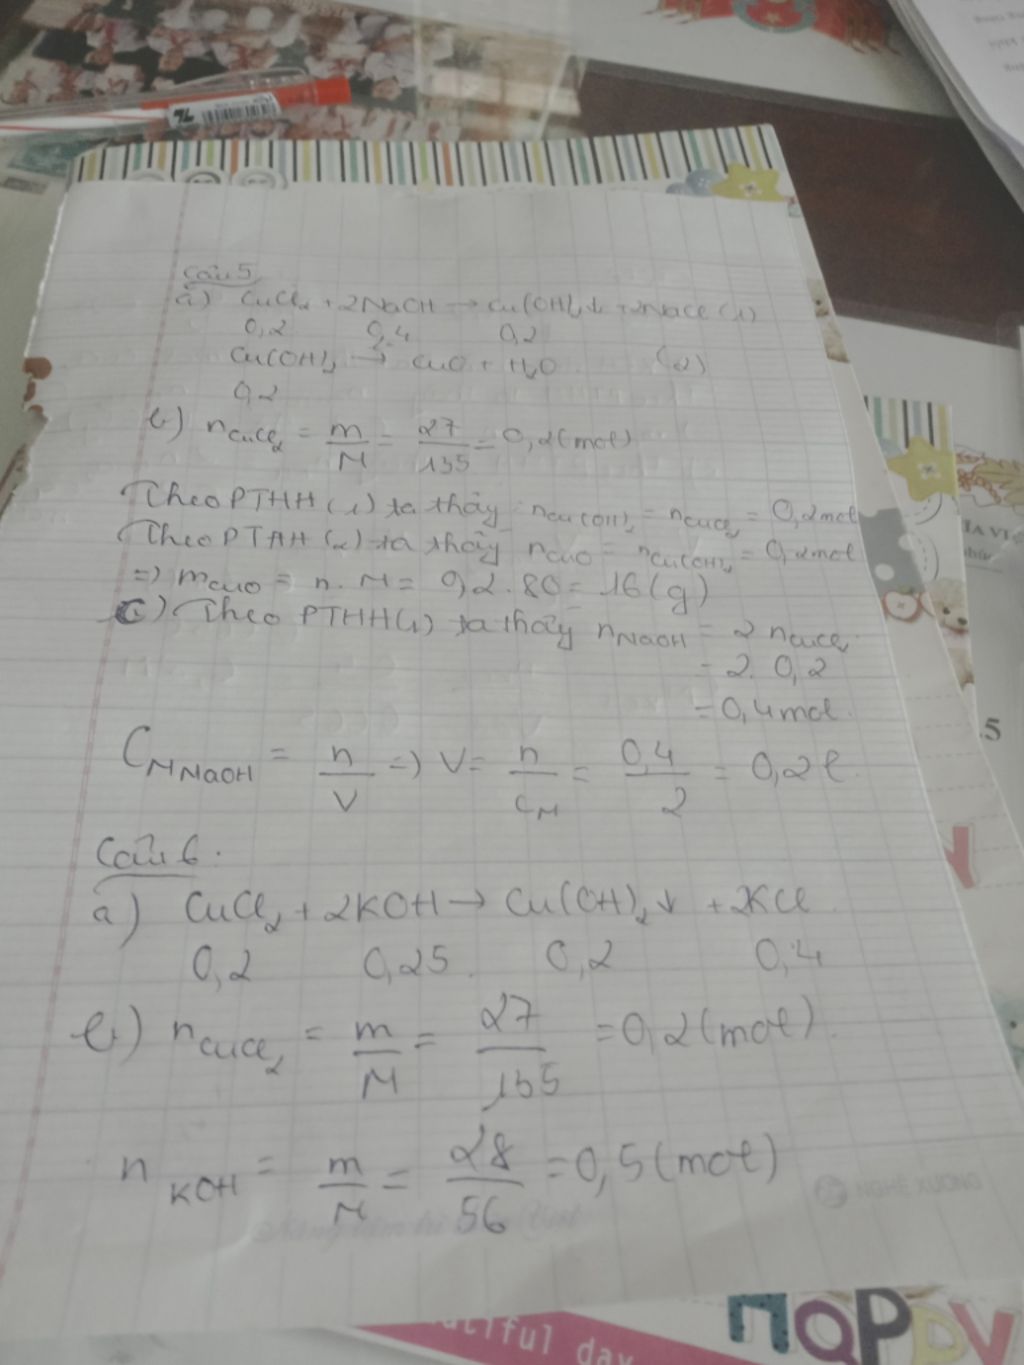 Câu 5
a) CuCl₂ + 2NaOH → Cu(OH)₂↓ + 2NaCl (1)
0,2 0,4 0,2
Cu(OH)₂ → CuO + H₂O (2)
0,2
b) nCuCl₂ = m/M = 27/135 = 0,2(mol)
Theo PTHH (1) ta thấy nCu(OH)₂ = nCuCl₂ = 0,2mol
Theo PTHH (2) ta thấy nCuO = nCu(OH)₂ = 0,2mol
=) mCuO = n. M = 0,2. 80 = 16(g)
c) Theo PTHH(1) ta thấy nNaOH = 2 nCuCl₂
= 2. 0,2
= 0,4mol.
CM NaOH = n/V =) V = n/CM = 0,4/2 = 0,2l
Câu 6.
a) CuCl₂ + 2KOH → Cu(OH)₂↓ + 2KCl
0,2 0,25 0,2 0,4
b) nCuCl₂ = m/M = 27/135 = 0,2(mol).
nKOH = m/M = 28/56 = 0,5(mol)
NGHÊ XUONG
iful day